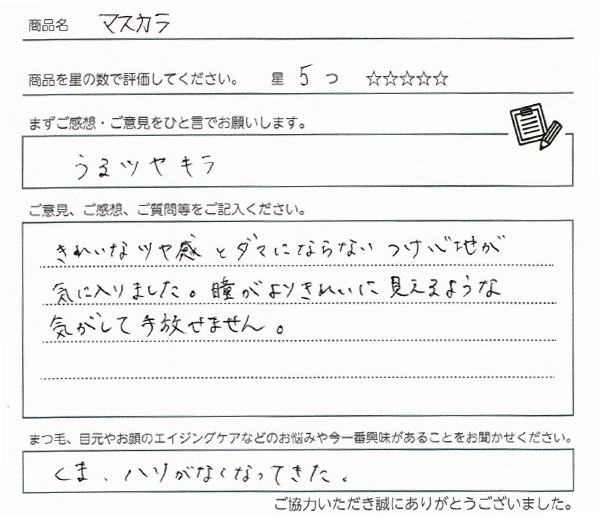 商品名 マスカラ
商品を星の数で評価してください。 星 5 つ ☆☆☆☆☆
まずご感想・ご意見をひと言でお願いします。
うるツヤキラ
ご意見、ご感想、ご質問等をご記入ください。
きれいなツヤ感とダマにならないつけ心地が
気に入りました。瞳がよりきれいに見えるような
気がして手放せません。
まつ毛、目元やお顔のエイジングケアなどのお悩みや今一番興味があることをお聞かせください。
くま、ハリがなくなってきた。
ご協力いただき誠にありがとうございました。